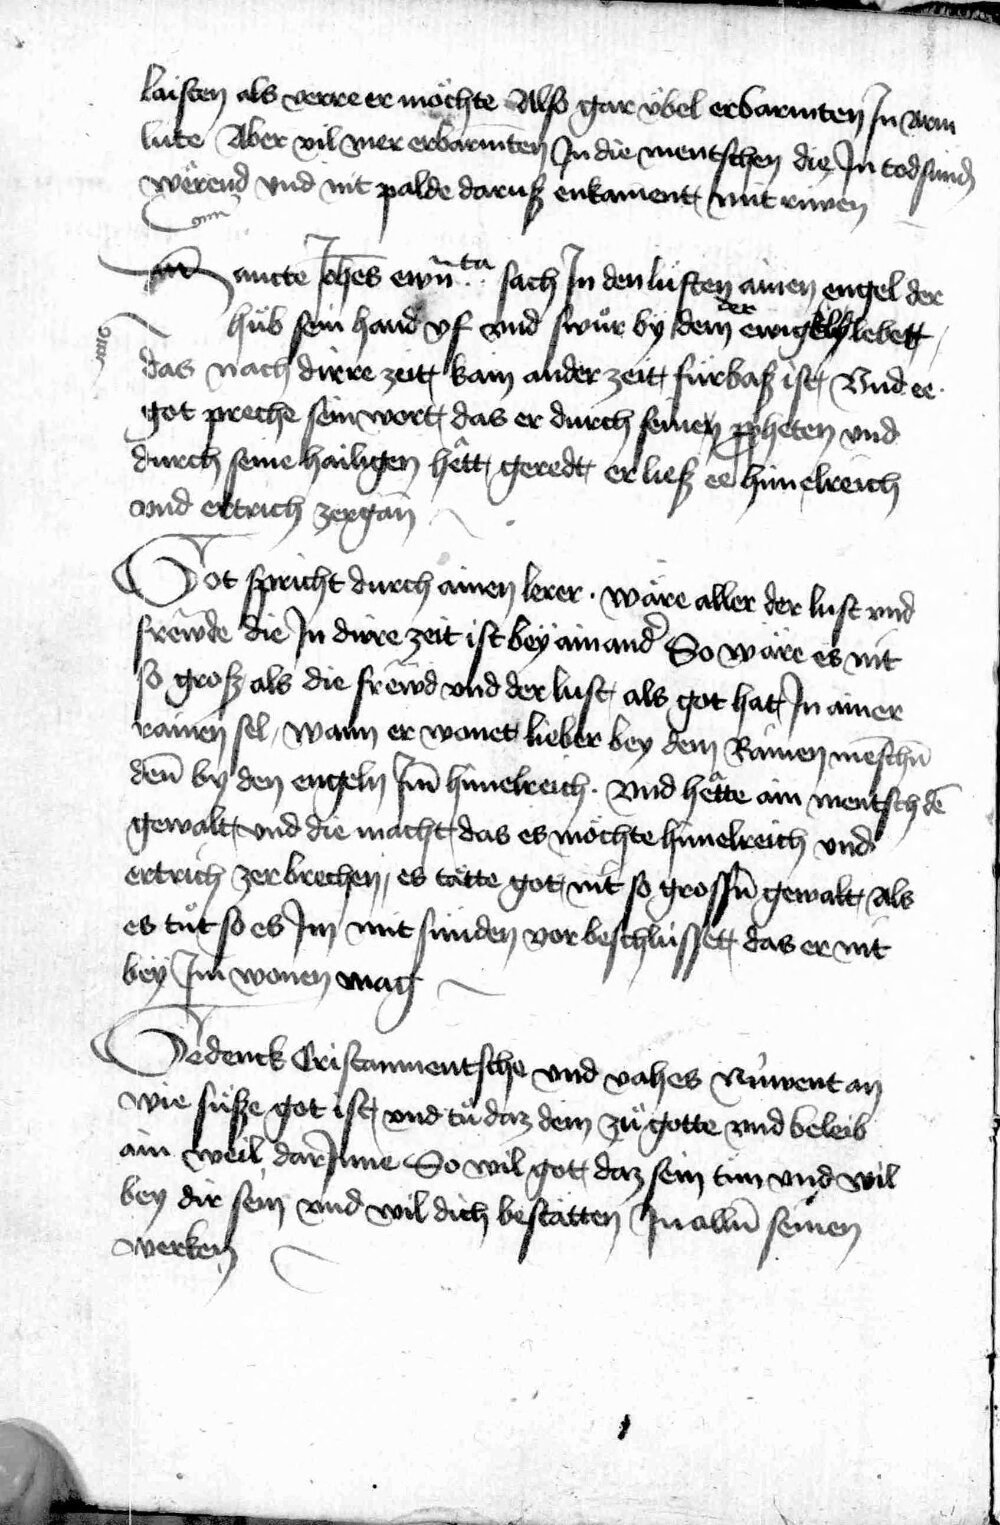 laisten als verre er möchte Also gar vbel erbarmten In arm
lüte Aber vil mer erbarmten In die mentschen die In todsünd
wërend vnd nit palde daruß enkament mit rüwen
Sancte Joh̅es ewn̅.ta sach In den lüften ainen engel der
hůb sein hand vf vnd swůr by dem der ewigklich lebett
das nach dirre zeit kain ander zeit fürbaß ist Vnd ee
got preche sein wort das er durch seinen ppheten vnd
durch seine hailigen hett geredt er ließ ee him̅elreich
vnd ertrich zergan
Got spricht durch ainen lerer · wäre aller der lust vnd
frëwde die In dirre zeit ist bey ainand̉ So wäre es nit
so groß als die frëwd vnd der lust als got hat In ainer
rainen sel / wann er wonet lieber bey dem Rainen me̅schn̅
den̅ by den engeln Im̅ him̅elreich · vnd hette ain mentsch de̅
gewalt vnd die macht das es möchte him̅elreich vnd
ertrich zerbrechen / es tätte got nit so grossn̅ gewalt Als
es tůt so es Im mit sünden vor beschlüssett das er nit
bey Im wonen mag
Gedenck Cristanmentsche vnd vahes Nüwent an
wie süsße got ist vnd tů daz dein zů gotte vnd beleib
ain weil darInne So wil got daz sein tun vnd wil
bey dir sein vnd wil dich bestätten In alln̅ seinen
werken